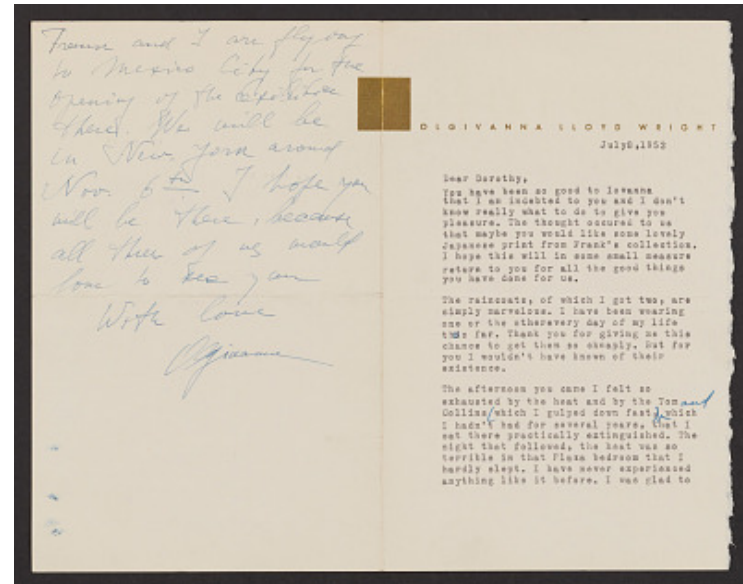 and I are flying
to Mexico City for the
opening of the
there. We will be
in New York around
Nov. 6th I hope you
will be there, because
all three of us would
love to see you
With love
Olgivanna
OLGIVANNA LLOYD WRIGHT
July8,1952
Dear Dorothy,
You have been so good to Iovanna
that I am indebted to you and I don't
know really what to do to give you
pleasure. The thought occured to us
that maybe you would like some lovely
Japanese print from Frank's collection.
I hope this will in some small measure
return to you for all the good things
you have done for us.
The raincoats, of which I got two, are
simply marvelous. I have been wearing
one or the otherevery day of my life
thus far. Thank you for giving me this
chance to get them so cheaply. But for
you I wouldn't have known of their
existence.
The afternoon you came I felt so
exhausted by the heat and by the Tom and
Collins (which I gulped down fast) which
I hadn't had for several years, that I
sat there practically extinguished. The
night that followed, the heat was so
terrible in that Plaza bedroom that I
hardly slept. I have never experienced
anything like it before. I was glad to